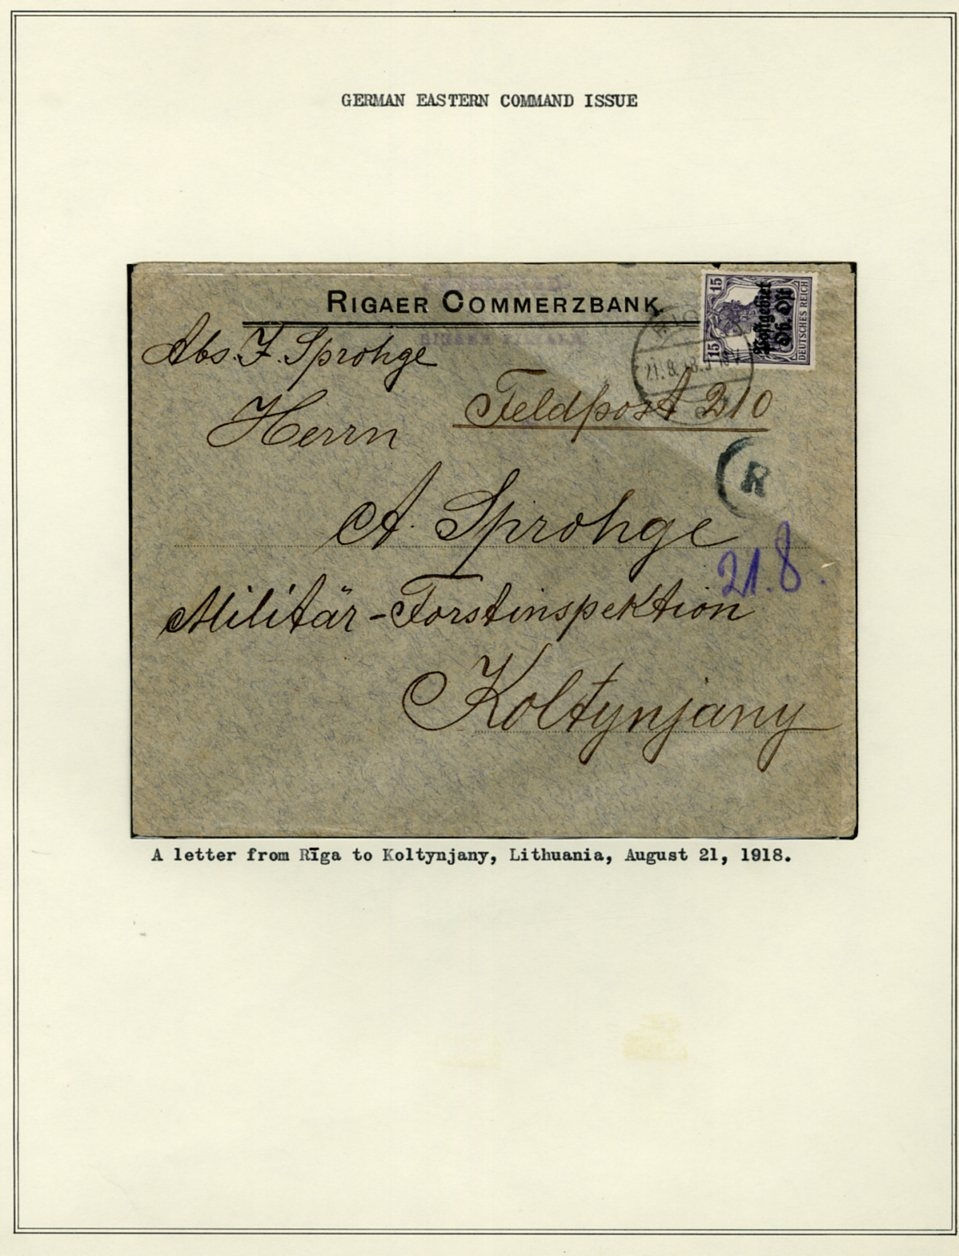 GERMAN EASTERN COMMAND ISSUE
RIGAER COMMERZBANK.
15
15
Postgebiet
Ob. Ost
DEUTSCHES REICH
Abs. F. Sprohge
21.8.18.
Herrn
Feldpost 210
R
A. Sprohge
21.8.
Militär-Forstinspektion
Koltynjany
A letter from Rīga to Koltynjany, Lithuania, August 21, 1918.